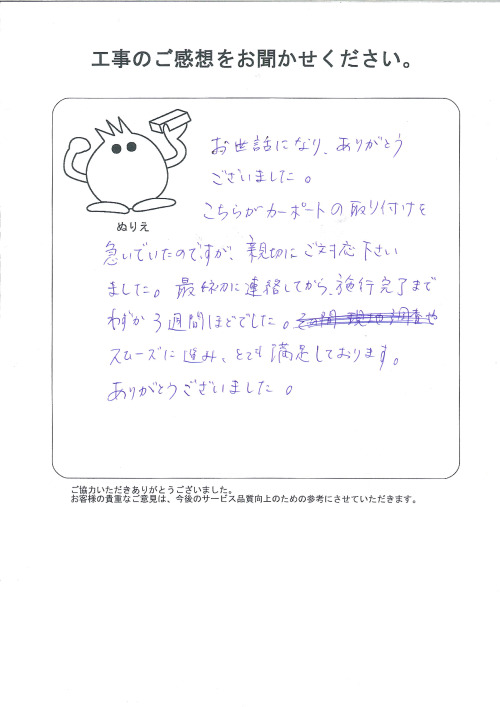 工事のご感想をお聞かせください。
お世話になり、ありがとう
ございました。
ぬりえ
こちらがカーポートの取り付けを
急いでいたのですが、親切にご対応下さい
ました。最初に連絡してから、施行完了まで
わずか3週間ほどでした。その間 現地調査や
スムーズに進み、とても満足しております。
ありがとうございました。
ご協力いただきありがとうございました。
お客様の貴重なご意見は、今後のサービス品質向上のための参考にさせていただきます。